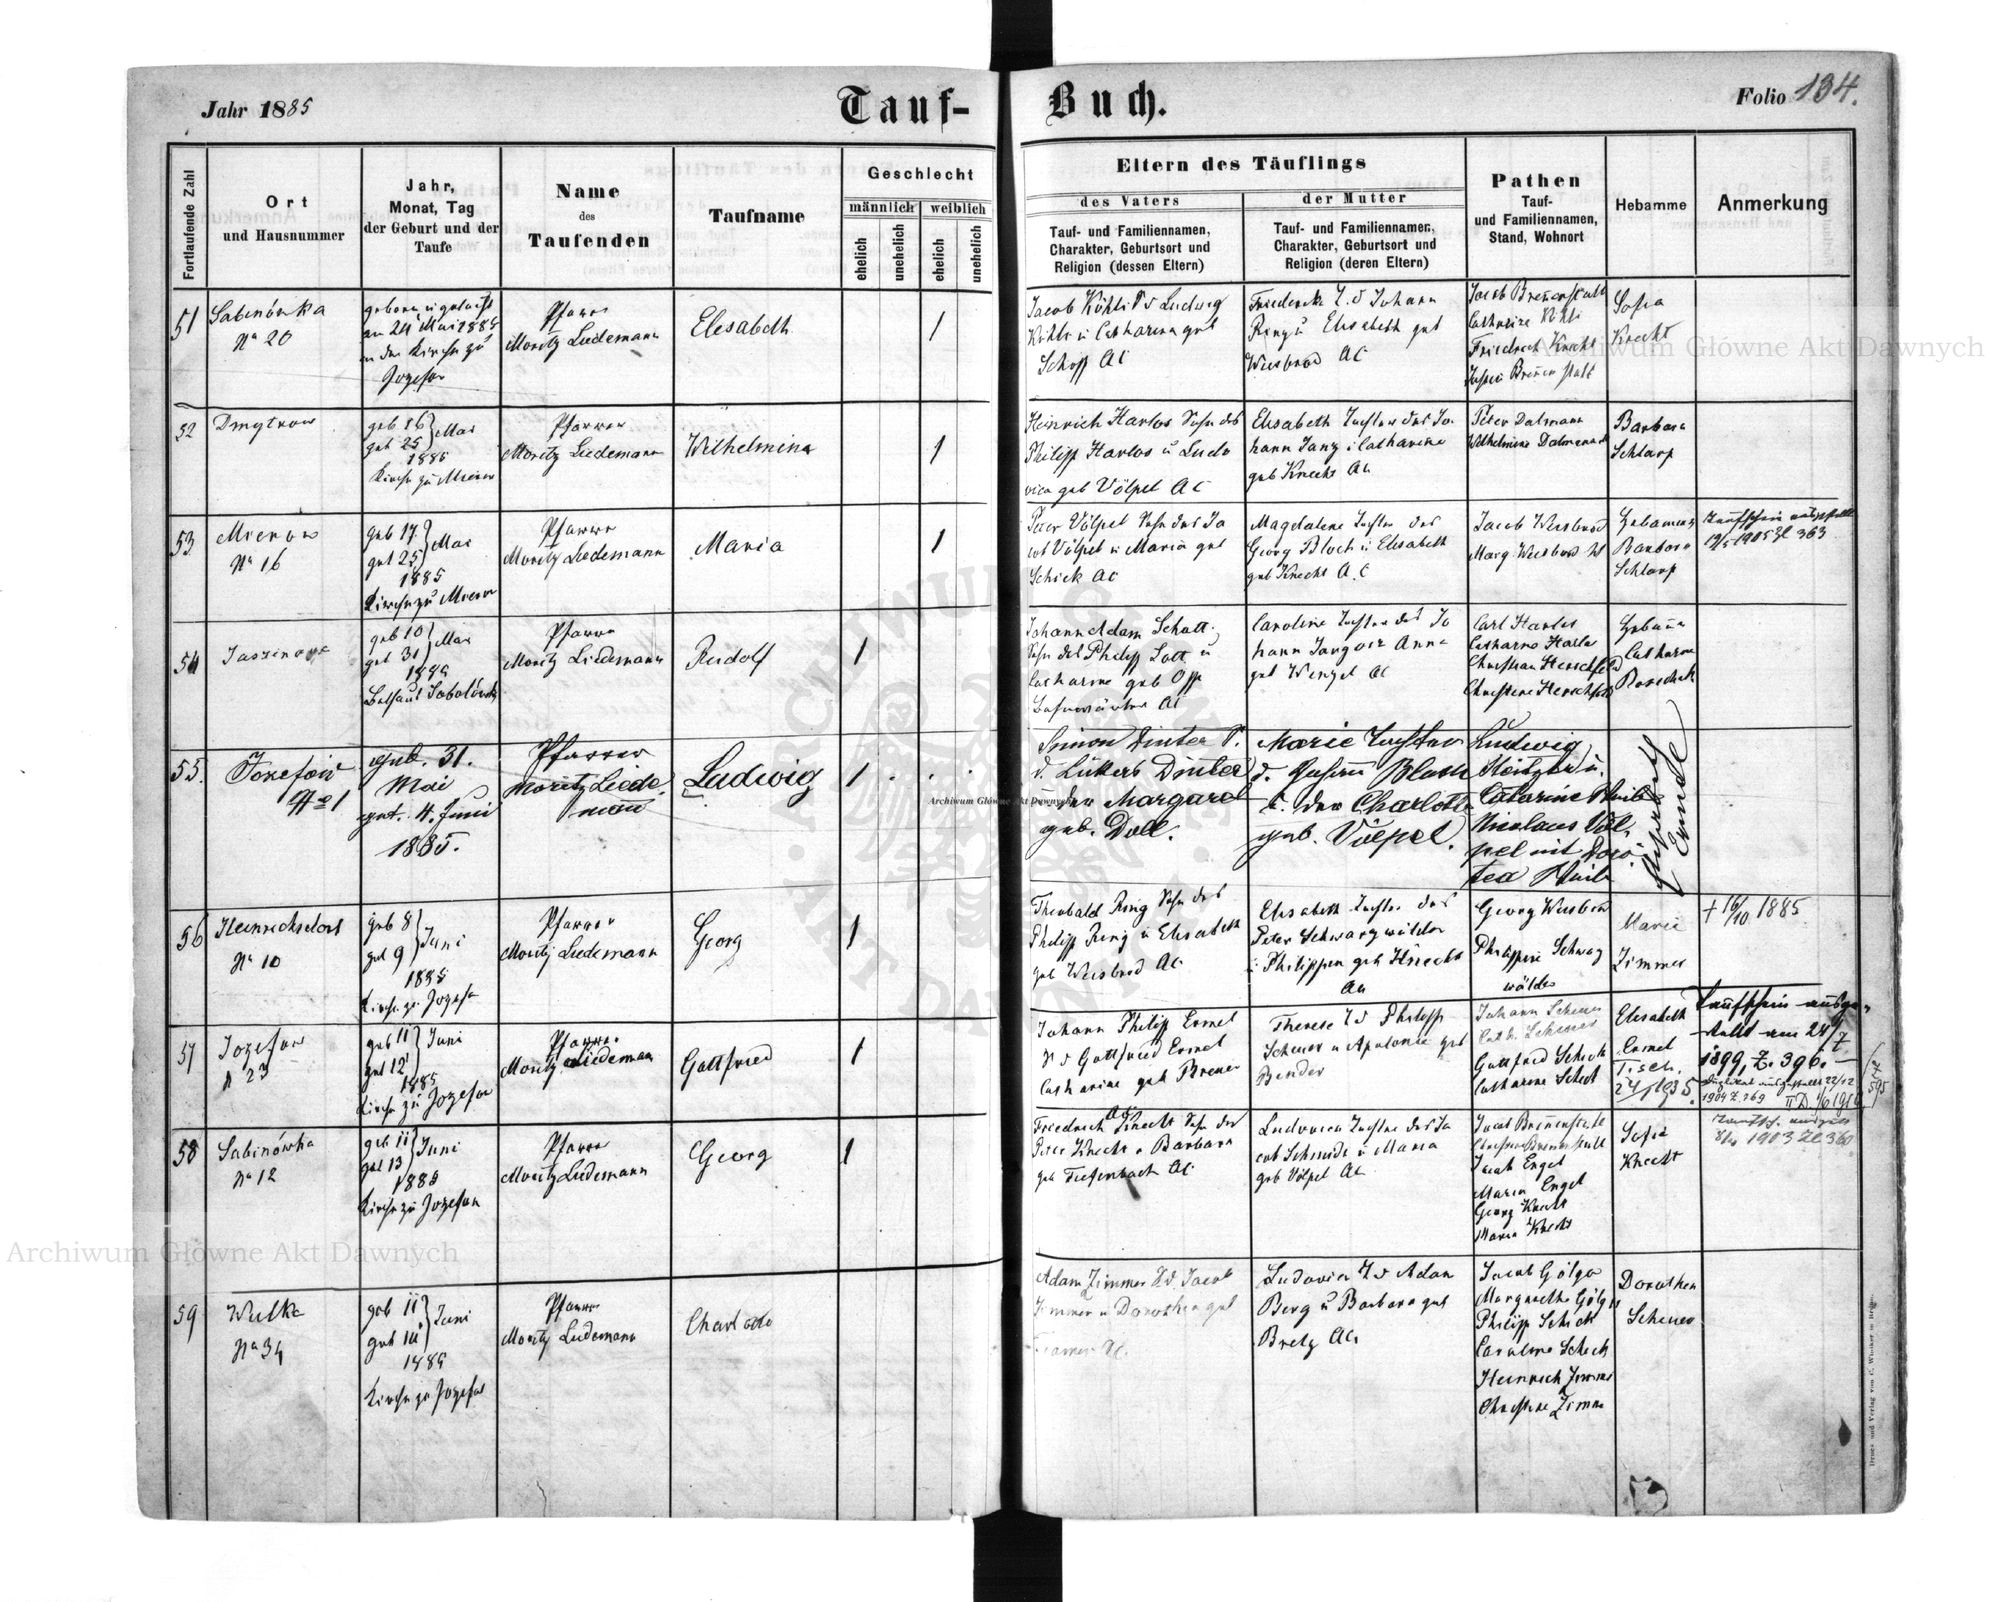 Jahr 1885
Tauf-
Buch.
Folio 134.
Fortlaufende Zahl
Ort
und Hausnummer
Jahr,
Monat, Tag
der Geburt und der
Taufe
Name
des
Taufenden
Taufname
Geschlecht
männlich
weiblich
ehelich
unehelich
ehelich
unehelich
Eltern des Täuflings
des Vaters
der Mutter
Tauf- und Familiennamen,
Charakter, Geburtsort und
Religion (dessen Eltern)
Tauf- und Familiennamen,
Charakter, Geburtsort und
Religion (deren Eltern)
Pathen
Tauf-
und Familiennamen,
Stand, Wohnort
Hebamme
Anmerkung
51
Sabinówka
No 20
geboren u getauft
am 24 Mai 1885
in der Kirche zu
Jozefow
Pfarrer
Moritz Liedemann
Elisabeth
1
Jacob Köhli S v Ludwig
Köhli u Catharina geb
Schopp AC
Friedericke T. v Johann
Ring u Elisabeth geb
Weisbrod AC
Jacob Brennenstuhl
Catharine Köhli
Friedrich Knecht
Brennenstuhl
Sofia
Knecht
52
Dmytrow
geb 16
get 25 Mai
1885
Kirche zu Mierow
Pfarrer
Moritz Liedemann
Wilhelmina
1
Heinrich Harlos Sohn des
Philipp Harlos u Ludo
vica geb Völpel AC
Elisabeth Tochter des Jo
hann Janz u Catharine
geb Knecht AC
Peter Dalmann
Wilhelmine Dalmann
Barbara
Schlarp
53
Mierow
No 16
geb 17
get 25 Mai
1885
Kirche zu Mierow
Pfarrer
Moritz Liedemann
Maria
1
Peter Völpel Sohn des Ja
cob Völpel u Maria geb
Schick AC
Magdalene Tochter des
Georg Bloch u Elisabeth
geb Knecht A.C
Jacob Weisbrod
Marg. Weisbrod
Hebamme
Barbara
Schlarp
Taufschein ausgestellt
1905 Zl 363
54
geb 10
get 31 Mai
1885
Pfarrer
Moritz Liedemann
Rudolf
1
Johann Adam Schott
Sohn des Philipp Sott u
Catharine geb Opp
AC
Caroline Tochter des Jo
hann Anna
geb Wenzel AC
Carl Harlos
Catharina Harlos
Christian Herschfeld
Christine Herschfeld
Hebamme
Catharina
55.
Josefow
No 1
geb. 31.
Mai
get. 4. Juni
1885.
Pfarrer
Moritz Liede-
mann
Ludwig
1
Simon Dinter S.
d. Dinter
u. der Margaret
geb. Doll.
Marie Tochter
d. Bloch
u. der Charlotte
geb. Völpel.
Ludwig
u.
Catarine
Nicolaus Völ-
pel mit Doro-
tea
56
Heinrichsdorf
No 10
geb 8
get 9 Juni
1885
Kirche zu Jozefow
Pfarrer
Moritz Liedemann
Georg
1
Theobald Ring Sohn des
Philipp Ring u Elisabeth
geb Weisbrod AC
Elisabeth Tochter des
Peter Schwarzwälder
u Philippin geb Knecht
AC
Georg Weisbrod
Philippine Schwarz
wälder
Marie
Zimmer
+ 16/10 1885
57
Jozefow
N 23
geb 11
get 12 Juni
1885
Kirche zu Jozefow
Pfarrer
Moritz Liedemann
Gottfried
1
Johann Philipp Ermel
S v Gottfried Ermel
Catharine geb Brenner
AC
Therese T v Philipp
Scheuer u Apolonie geb
Bender
Johann Scheuer
Cath. Scheuer
Gottfried Schick
Catharina Schick
Elisabeth
Ermel
T. sch.
Taufschein ausge-
stellt am 24/7
1899, Z. 396.
Duplikat ausgestellt 22/12
1904 Z 769
58
Sabinówka
No 12
geb 11
get 13 Juni
1885
Kirche zu Jozefow
Pfarrer
Moritz Liedemann
Georg
1
Friedrich Knecht Sohn des
Peter Knecht u Barbara
geb Tiefenbach AC
Ludovica Tochter des Ja
cob Schmidt u Maria
geb Völpel AC
Jacob Brennenstuhl
Jacob Engel
Maria Engel
Georg Knecht
Maria Knecht
Sofie
Knecht
1903 Zl 360
59
Wulka
No 34
geb 11
get 14 Juni
1885
Kirche zu Jozefow
Pfarrer
Moritz Liedemann
Charlotte
Adam Zimmer S v Jacob
Zimmer u Dorothea geb
AC
Ludovica T v Adam
Berg u Barbara geb
Bretz AC
Jacob Gölge
Margarethe Gölge
Philipp Schick
Caroline Schick
Heinrich Zimmer
Christine Zimmer
Dorothea
Scheuer
Archiwum Główne Akt Dawnych
Archiwum Główne Akt Dawnych
Archiwum Główne Akt Dawnych